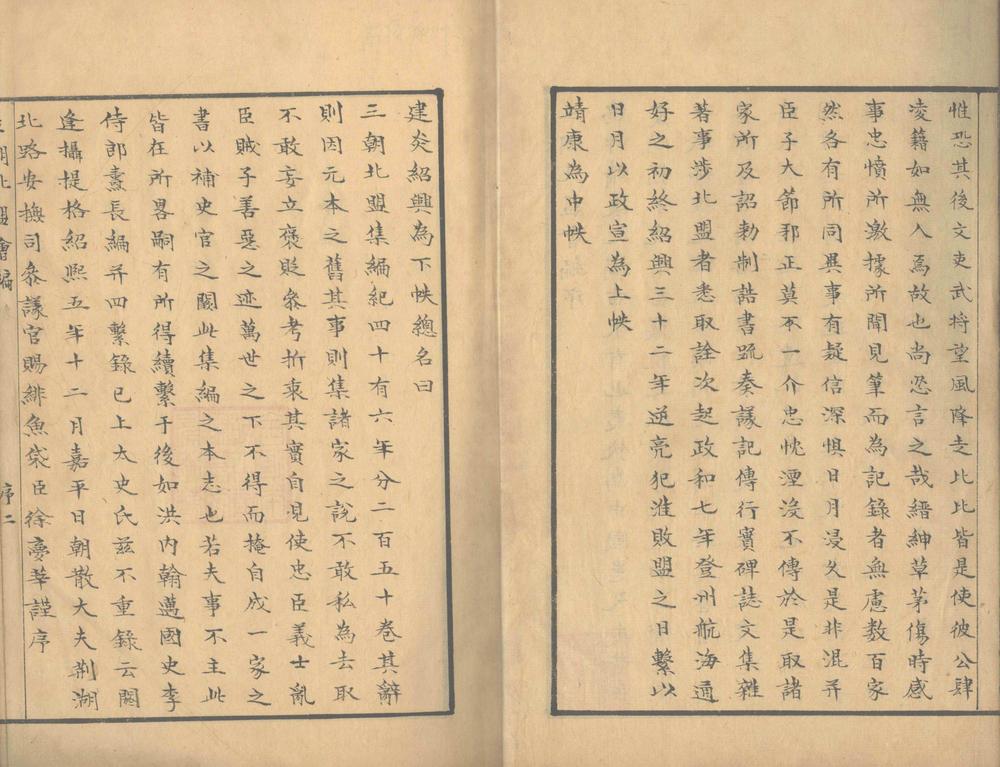 惟恐其後文吏武将望風降走比比皆是使彼公肆
凌籍如無人焉故也尚忍言之哉縉紳草茅傷時感
事忠憤所激據所聞見筆而為記録者無慮数百家
然各有所同異事有疑信深惧日月浸久是非混并
臣子大節邪正莫不一介忠忱湮没不傳於是取諸
家所及詔勅制誥書疏奏議記傳行實碑誌文集雜
著事涉北盟者悉取詮次起政和七年登州航海通
好之初終紹興三十二年逆亮犯淮敗盟之日繫以
日月以政宣為上帙
靖康為中帙
建炎紹興為下帙總名曰
三朝北盟集編紀四十有六年分二百五十卷其辭
則因元本之舊其事則集諸家之說不敢私為去取
不敢妄立褒貶叅考折衷其實自見使忠臣義士亂
臣賊子善惡之迹萬世之下不得而掩自成一家之
書以補史官之闕此集編之本志也若夫事不主此
皆在所畧嗣有所得續繫于後如洪内翰邁國史李
侍郎燾長編并四繫錄已上太史氏茲不重錄云閼
逢攝提格紹熙五年十二月嘉平日朝散大夫荆湖
北路安撫司叅議官賜緋魚袋臣徐夢莘謹序
朝北盟會編
序二